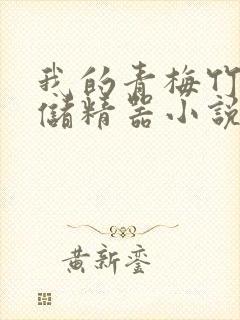 我的青梅竹
儲精器小說
黃新鑾